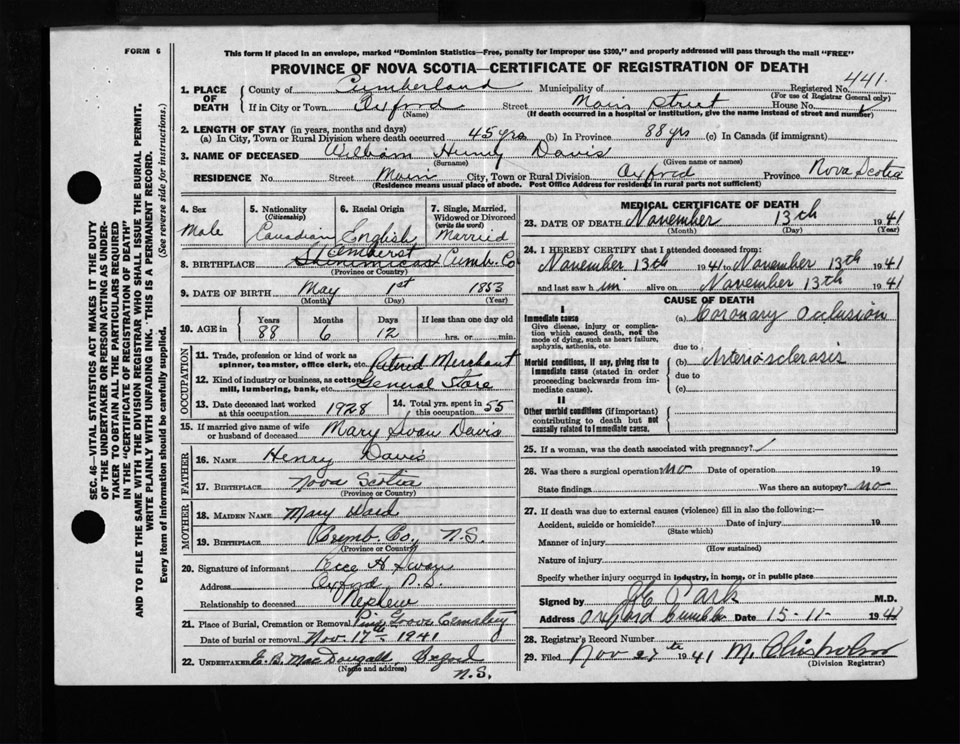 FORM 6
This form if placed in an envelope, marked "Dominion Statistics—Free, penalty for improper use $300," and properly addressed will pass through the mail "FREE"
PROVINCE OF NOVA SCOTIA—CERTIFICATE OF REGISTRATION OF DEATH
441
1. PLACE OF DEATH County of Cumberland Municipality of Registered No.
(For use of Registrar General only)
If in City or Town Oxford Street Main Street House No.
(Name) (If death occurred in a hospital or institution, give the name instead of street and number)
2. LENGTH OF STAY (in years, months and days)
(a) In City, Town or Rural Division where death occurred 45 yrs (b) In Province 88 yrs (c) In Canada (if immigrant)
3. NAME OF DECEASED William Henry Davis
(Surname) (Given name or names)
RESIDENCE No. Street Main City, Town or Rural Division Oxford Province Nova Scotia
(Residence means usual place of abode. Post Office Address for residents in rural parts not sufficient)
4. Sex Male
5. Nationality (Citizenship) Canadian
6. Racial Origin English
7. Single, Married, Widowed or Divorced (write the word) Married
8. BIRTHPLACE Amherst Cumb. Co
(Province or Country)
9. DATE OF BIRTH May 1st 1853
(Month) (Day) (Year)
10. AGE in Years 88 Months 6 Days 12 If less than one day old hrs. or min.
OCCUPATION
11. Trade, profession or kind of work as spinner, teamster, office clerk, etc. Retired Merchant
12. Kind of industry or business, as cotton mill, lumbering, bank, etc. General Store
13. Date deceased last worked at this occupation 1928
14. Total yrs. spent in this occupation 55
15. If married give name of wife or husband of deceased Mary Swan Davis
FATHER
16. NAME Henry Davis
17. BIRTHPLACE Nova Scotia
(Province or Country)
MOTHER
18. MAIDEN NAME Mary Ward
19. BIRTHPLACE Cumb. Co, N.S.
(Province or Country)
20. Signature of informant H Swan
Address Oxford N.S.
Relationship to deceased Nephew
21. Place of Burial, Cremation or Removal Pine Grove Cemetery
Date of burial or removal Nov. 17th 1941
22. UNDERTAKER E. B. MacDougald, Oxford N.S.
(Name and address)
MEDICAL CERTIFICATE OF DEATH
23. DATE OF DEATH November 13th 1941
(Month) (Day) (Year)
24. I HEREBY CERTIFY that I attended deceased from:
November 13th 1941 to November 13th 1941
and last saw him alive on November 13th 1941
CAUSE OF DEATH
I
Immediate cause (a) Coronary Occlusion
Give disease, injury or complication which caused death, not the mode of dying, such as heart failure, asphyxia, asthenia, etc.
due to
Morbid conditions, if any, giving rise to immediate cause (stated in order proceeding backwards from immediate cause).
(b) Arteriosclerosis
due to
(c)
II
Other morbid conditions (if important) contributing to death but not causally related to immediate cause.
25. If a woman, was the death associated with pregnancy? /
26. Was there a surgical operation? no Date of operation 19
State findings Was there an autopsy? no
27. If death was due to external causes (violence) fill in also the following:—
Accident, suicide or homicide? Date of injury 19
(State which)
Manner of injury
(How sustained)
Nature of injury
Specify whether injury occurred in industry, in home, or in public place
Signed by Park M.D.
Address Oxford Date 15-11- 1941
28. Registrar's Record Number
29. Filed Nov 27th 1941 M. Chisholm
(Division Registrar)
SEC. 46—VITAL STATISTICS ACT MAKES IT THE DUTY
OF THE UNDERTAKER OR PERSON ACTING AS UNDER-
TAKER TO OBTAIN ALL THE PARTICULARS REQUIRED
IN THE "CERTIFICATE OF REGISTRATION OF DEATH"
AND TO FILE THE SAME WITH THE DIVISION REGISTRAR WHO SHALL ISSUE THE BURIAL PERMIT.
WRITE PLAINLY WITH UNFADING INK. THIS IS A PERMANENT RECORD.
Every item of information should be carefully supplied. (See reverse side for instructions.)